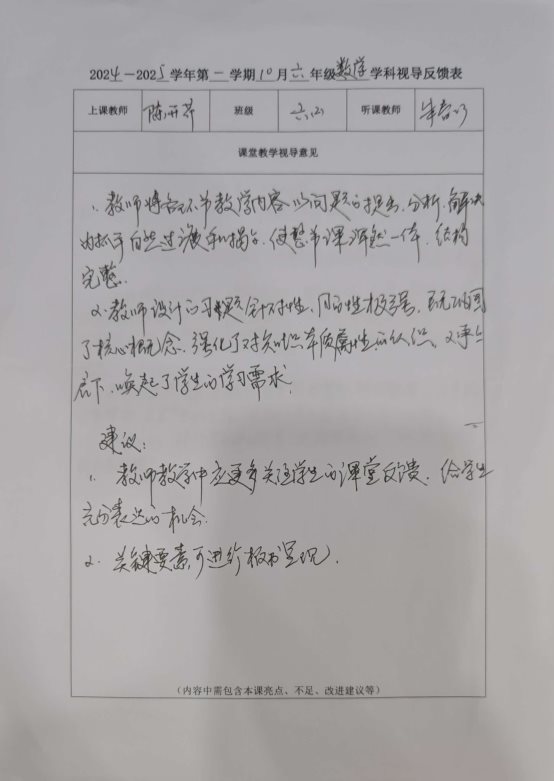 2024—2025学年第一学期10月六年级数学学科视导反馈表
上课教师 陈研芹 班级 六(2) 听课教师
课堂教学视导意见
1. 教师将各环节教学内容以问题的提出、分析、解决
为抓手自然过渡和揭示,使整节课浑然一体,结构
完整。
2. 教师设计的习题针对性、目的性极强,既巩固
了核心概念,强化了对知识本质属性的认识,又承上
启下,唤起了学生的学习需求。
建议:
1. 教师教学中应更多关注学生的课堂反馈,给学生
充分表达的机会。
2. 关键要素可进行板书呈现。
(内容中需包含本课亮点、不足、改进建议等)